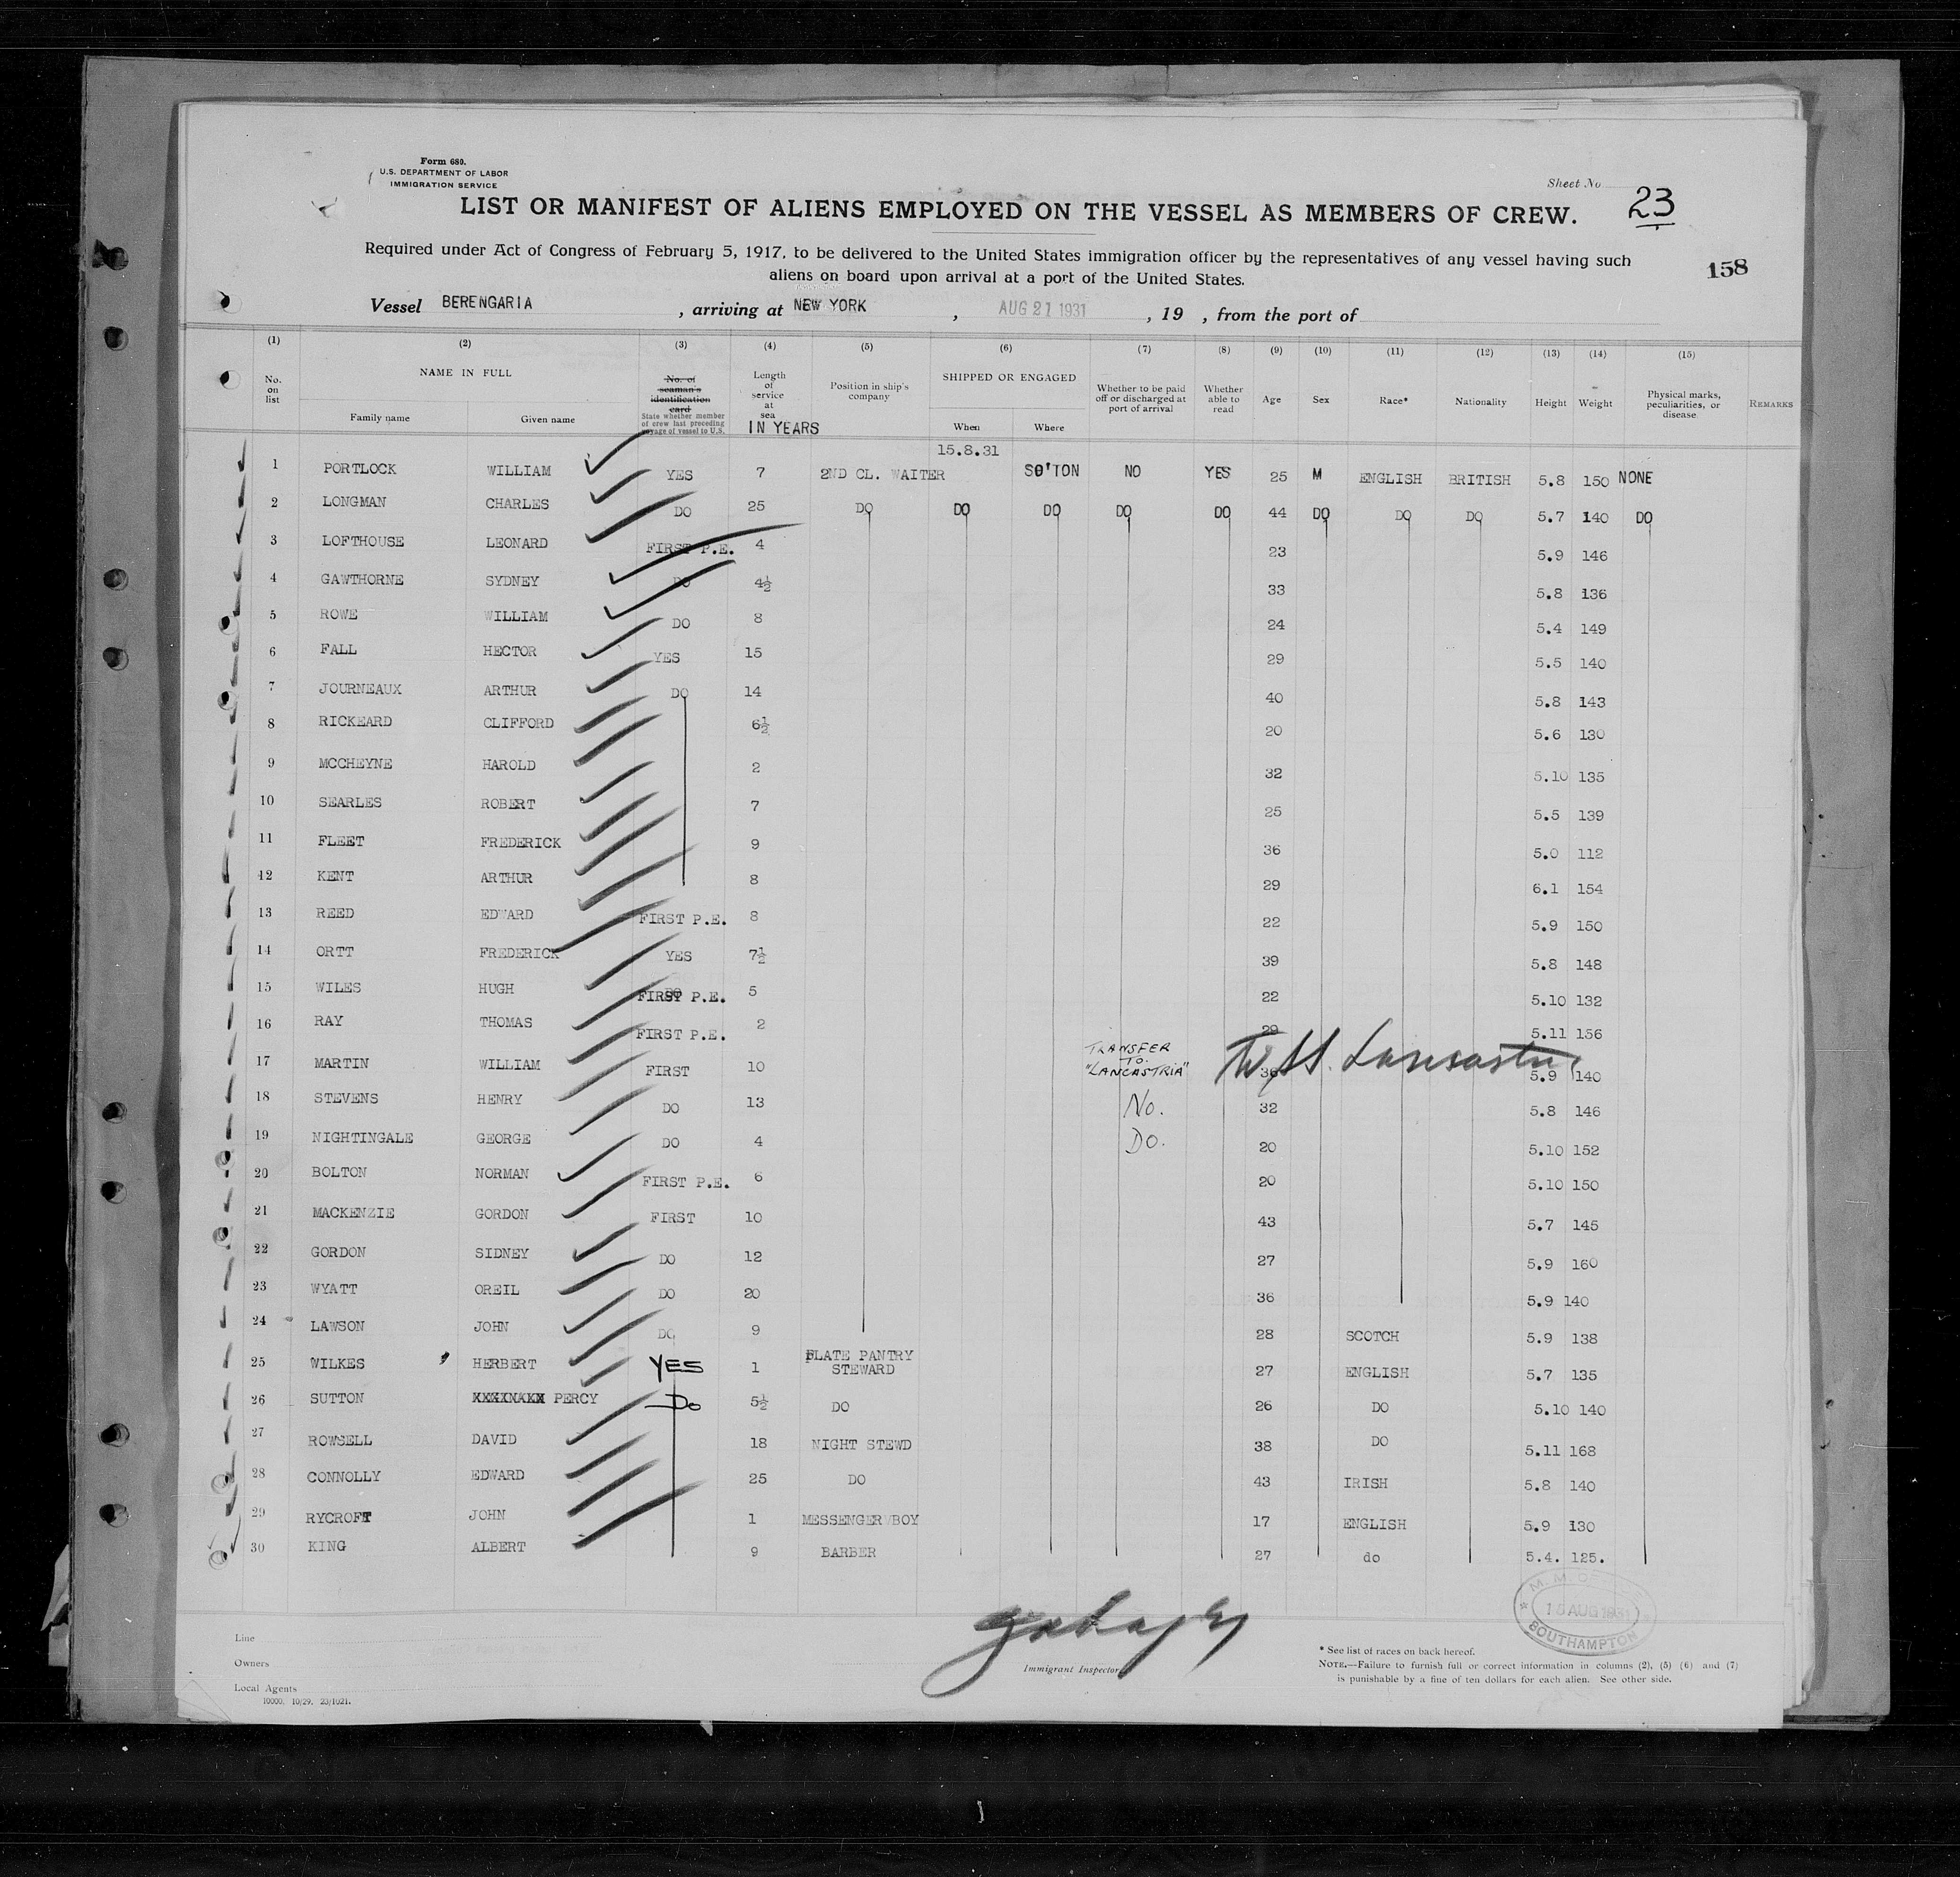 Form 680.
U.S. DEPARTMENT OF LABOR
IMMIGRATION SERVICE
Sheet No 23
LIST OR MANIFEST OF ALIENS EMPLOYED ON THE VESSEL AS MEMBERS OF CREW.
Required under Act of Congress of February 5, 1917, to be delivered to the United States immigration officer by the representatives of any vessel having such
aliens on board upon arrival at a port of the United States.
158
Vessel BERENGARIA , arriving at NEW YORK , AUG 21 1931 , 19 , from the port of
(1) (2) (3) (4) (5) (6) (7) (8) (9) (10) (11) (12) (13) (14) (15)
No. on list
NAME IN FULL
Family name Given name
No. of seaman's identification card
State whether member of crew last preceding voyage of vessel to U.S.
Length of service at sea
IN YEARS
Position in ship's company
SHIPPED OR ENGAGED
When Where
Whether to be paid off or discharged at port of arrival
Whether able to read
Age Sex Race* Nationality Height Weight
Physical marks, peculiarities, or disease
REMARKS
15.8.31
1 PORTLOCK WILLIAM YES 7 2ND CL. WAITER SO'TON NO YES 25 M ENGLISH BRITISH 5.8 150 NONE
2 LONGMAN CHARLES DO 25 DO DO DO DO DO 44 DO DO DO 5.7 140 DO
3 LOFTHOUSE LEONARD FIRST P.E. 4 23 5.9 146
4 GAWTHORNE SYDNEY DO 4½ 33 5.8 136
5 ROWE WILLIAM DO 8 24 5.4 149
6 FALL HECTOR YES 15 29 5.5 140
7 JOURNEAUX ARTHUR DO 14 40 5.8 143
8 RICKEARD CLIFFORD 6½ 20 5.6 130
9 MCCHEYNE HAROLD 2 32 5.10 135
10 SEARLES ROBERT 7 25 5.5 139
11 FLEET FREDERICK 9 36 5.0 112
12 KENT ARTHUR 8 29 6.1 154
13 REED EDWARD FIRST P.E. 8 22 5.9 150
14 ORTT FREDERICK YES 7½ 39 5.8 148
15 WILES HUGH FIRST P.E. 5 22 5.10 132
16 RAY THOMAS FIRST P.E. 2 29 5.11 156
17 MARTIN WILLIAM FIRST 10 TRANSFER TO. "LANCASTRIA" 36 5.9 140
18 STEVENS HENRY DO 13 No. 32 5.8 146
19 NIGHTINGALE GEORGE DO 4 Do. 20 5.10 152
20 BOLTON NORMAN FIRST P.E. 6 20 5.10 150
21 MACKENZIE GORDON FIRST 10 43 5.7 145
22 GORDON SIDNEY DO 12 27 5.9 160
23 WYATT OREIL DO 20 36 5.9 140
24 LAWSON JOHN DO 9 28 SCOTCH 5.9 138
25 WILKES HERBERT YES 1 PLATE PANTRY STEWARD 27 ENGLISH 5.7 135
26 SUTTON PERCY Do 5½ DO 26 DO 5.10 140
27 ROWSELL DAVID 18 NIGHT STEWD 38 DO 5.11 168
28 CONNOLLY EDWARD 25 DO 43 IRISH 5.8 140
29 RYCROFT JOHN 1 MESSENGER BOY 17 ENGLISH 5.9 130
30 KING ALBERT 9 BARBER 27 do 5.4. 125.
15 AUG 1931
SOUTHAMPTON
Line
Owners
Local Agents
10000. 10/29. 23/1021.
Immigrant Inspector
* See list of races on back hereof.
NOTE.—Failure to furnish full or correct information in columns (2), (5) (6) and (7)
is punishable by a fine of ten dollars for each alien. See other side.